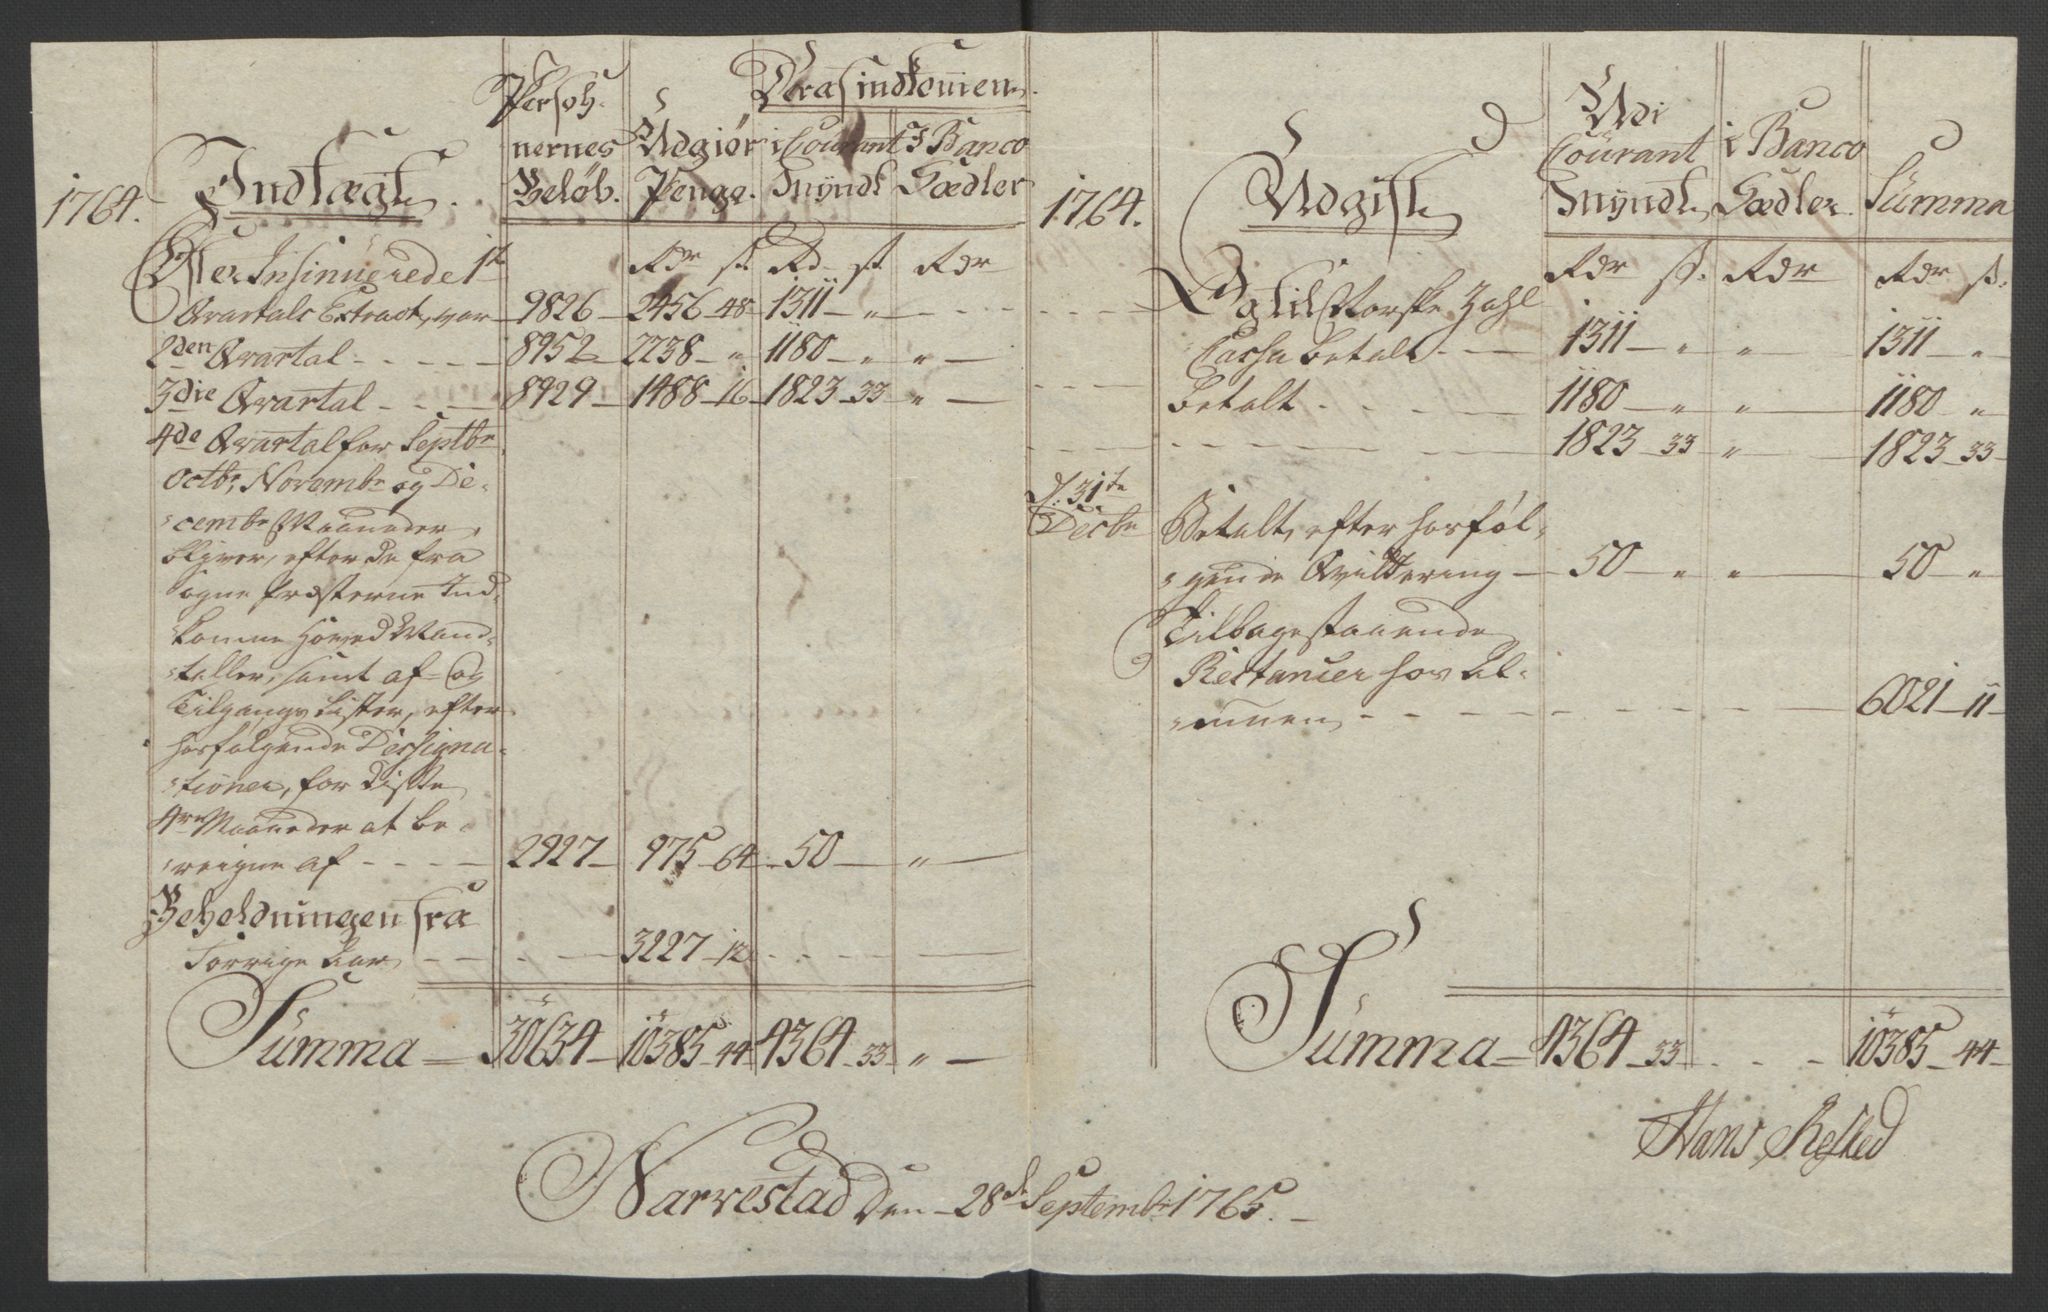 1764.
Indtægt.
Persoh-
nernes
Beløb.
Udgiør
Penge.
Deraf indkommen
i Courant
Myndt
I Banco
Sædler
Rdr s. Rd s. Rdr
Efter Insinuerede 1te
Qvartals Extract, var 9826 2456 48 1311 "
2den Qvartal 8952 2238 " 1180 " "
3die Qvartal 8929 1488 16 1823 33 "
4de Qvartal for Septbr
Octbr, Novembr og De-
cembr Maaneder,
bliver, efter de fra
Sogne Præsterne Ind-
komne Hoved Mand-
taller, samt af- og
Tilgangs Lister, efter
hosfølgende Dessigna-
tioner, for disse
4re Maaneder at be-
reigne af 2927 975 64 50 "
Beholdningen fra
Forrige Aar 3227 12
Summa 30634 10385 44 4364 33 "
1764.
Udgift
Udi
Courant
Myndt
i Banco
Sædler
Summa
Rdr s. Rdr Rdr s.
Og til Norske Zahl
Cassa betalt 1311 " " 1311 "
betalt 1180 " " 1180 "
1823 33 " 1823 33
d. 31te
Decbr
Betalt, efter hosføl-
gende Qvittering 50 " " 50 "
Tilbagestaaende
Restancer hos Al-
muen 6021 11
Summa 4364 33 10385 44
Hans Resled
Narvestad den 28de Septembr 1765.